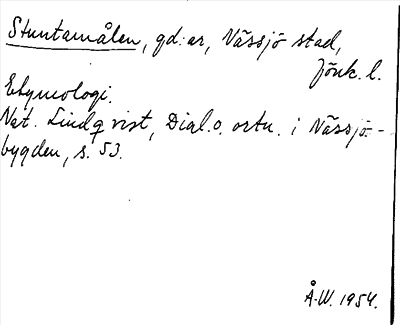 Stuntamålen, gd:ar, Nässjö stad,
Jönk. l.
Etymologi.
Nat. Lindqvist, Dial. o. ortn. i Nässjö-
bygden, s. 53.
Å-W. 1954.